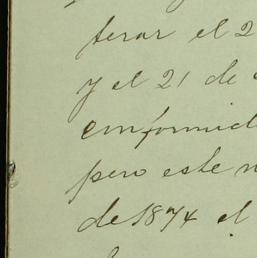 terar el 2
y el 21 de
conformid
pero este
de 1874 el